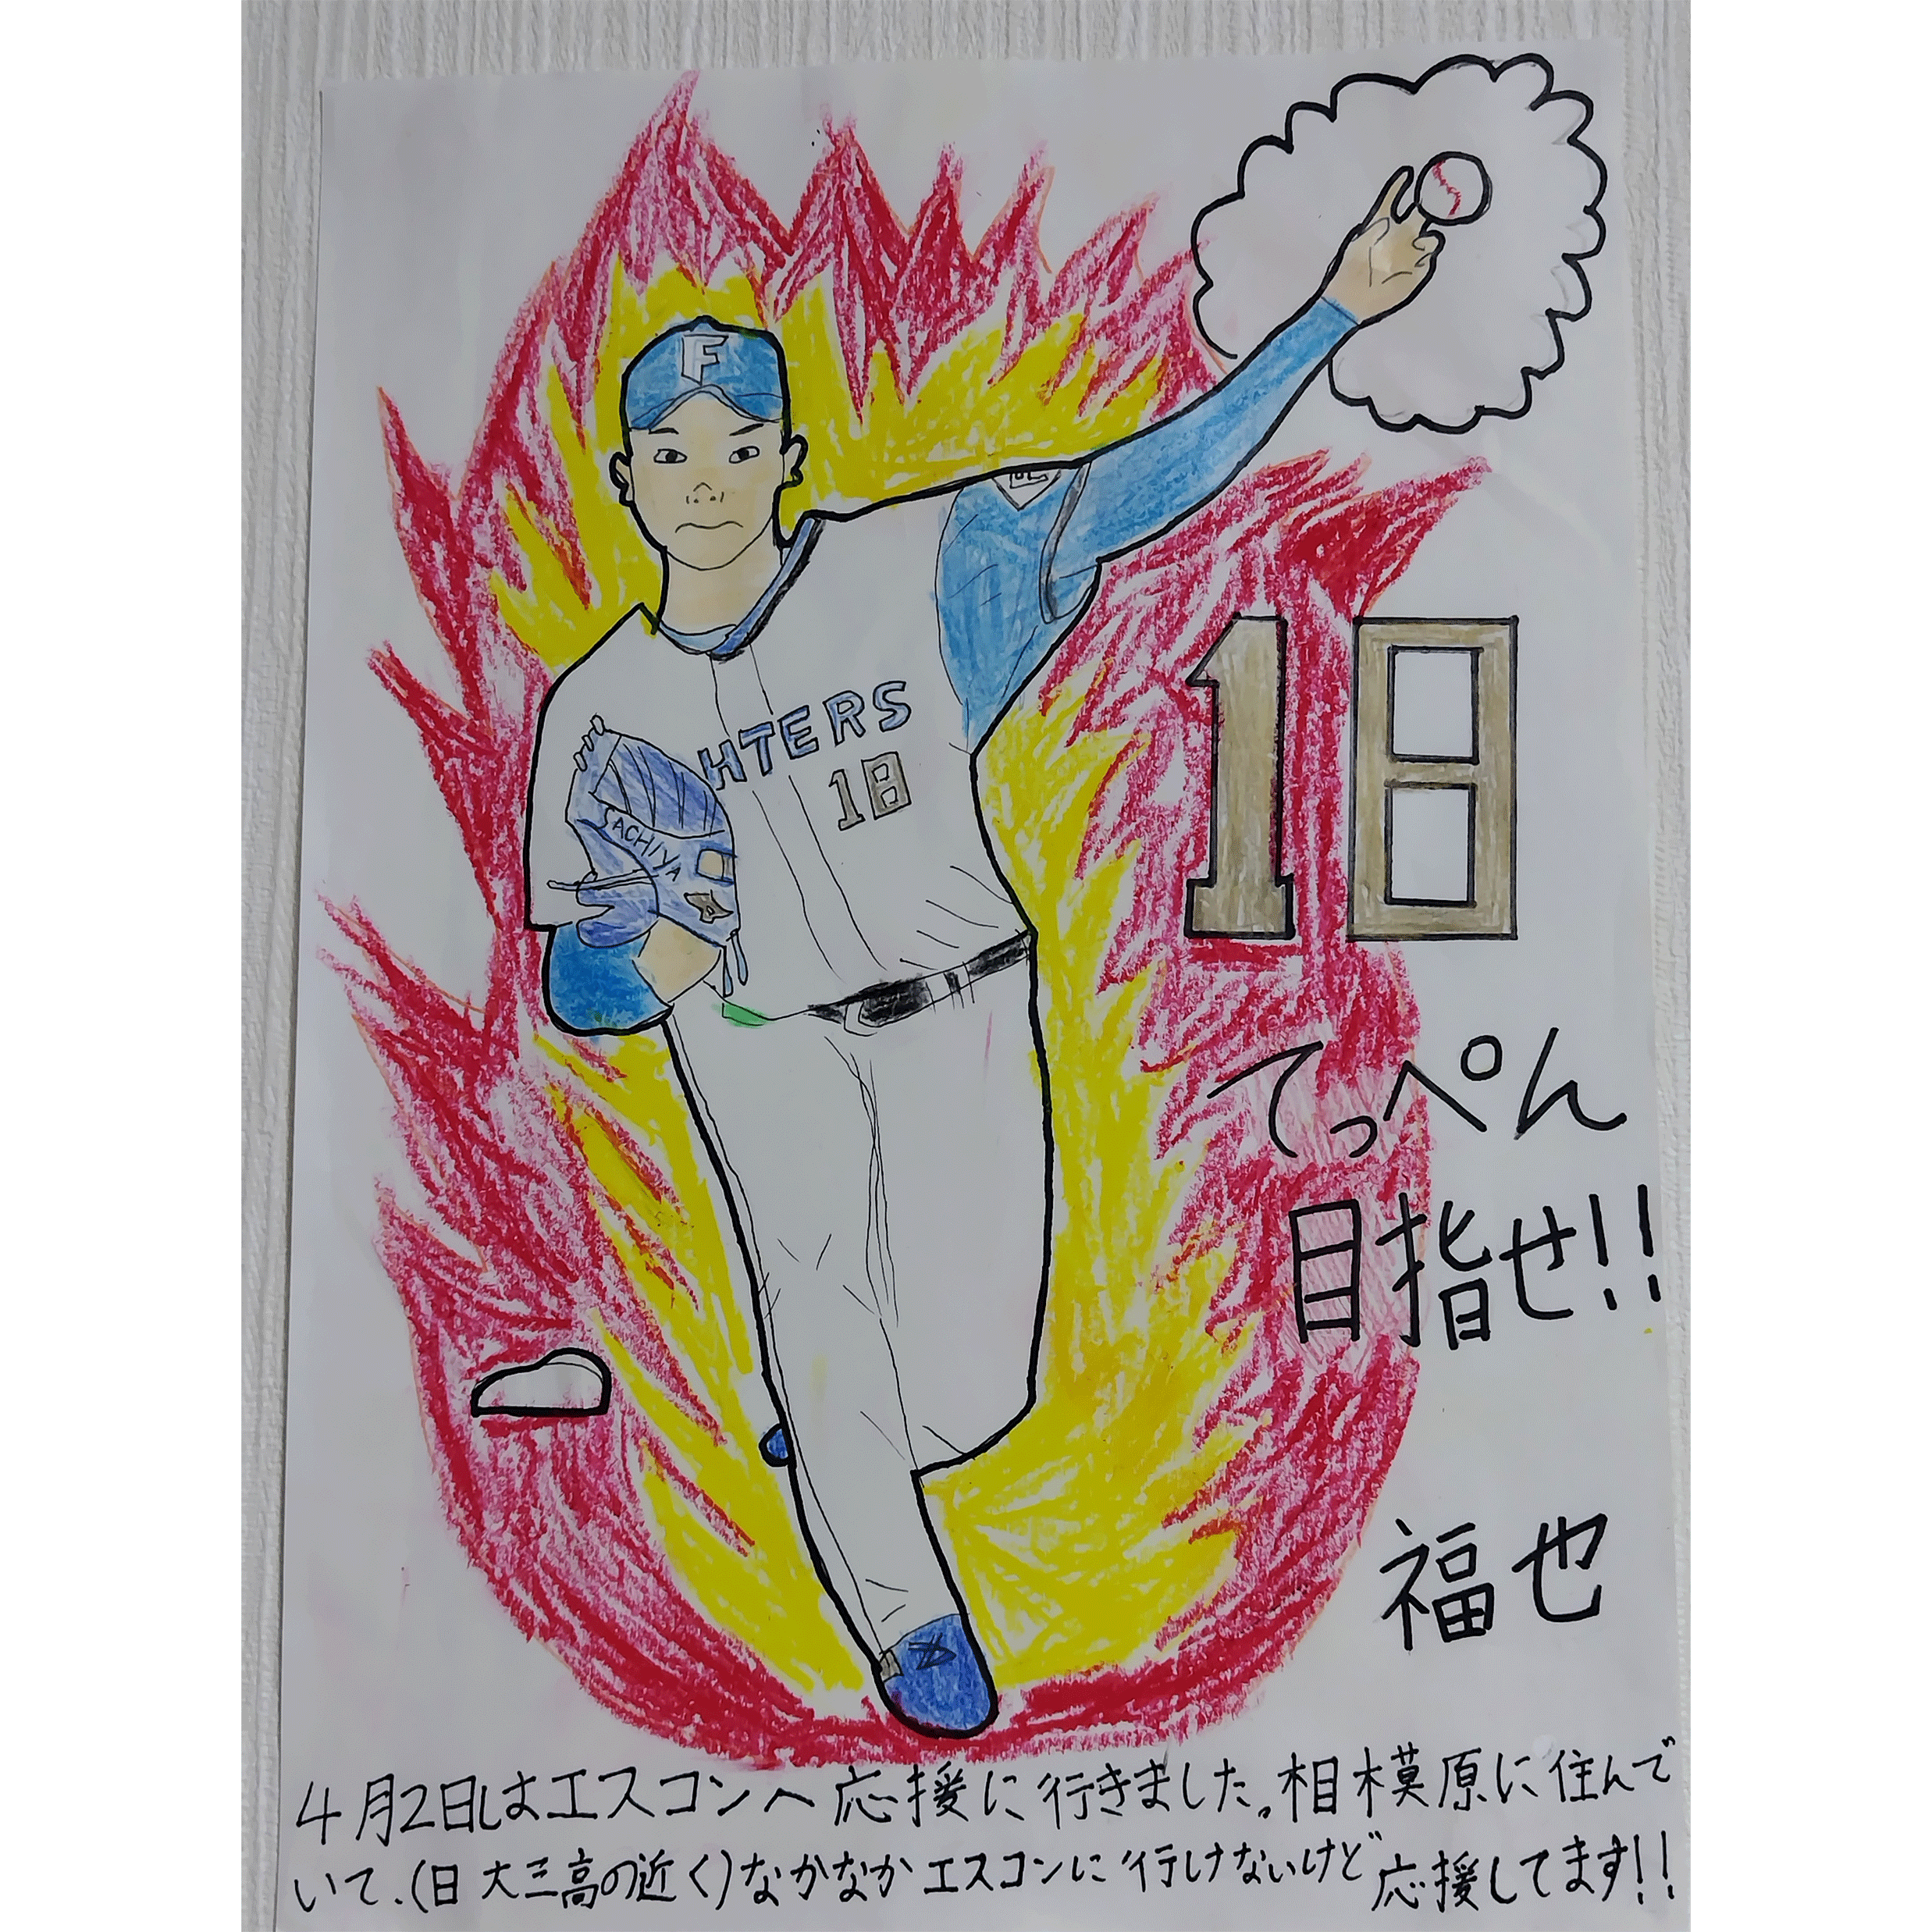 F
HTERS
18
SACHIYA
18
てっぺん
目指せ!!
福也
4月2日はエスコンへ応援に行きました。相模原に住んで
いて、(日大三高の近く)なかなかエスコンに行けないけど応援してます!!